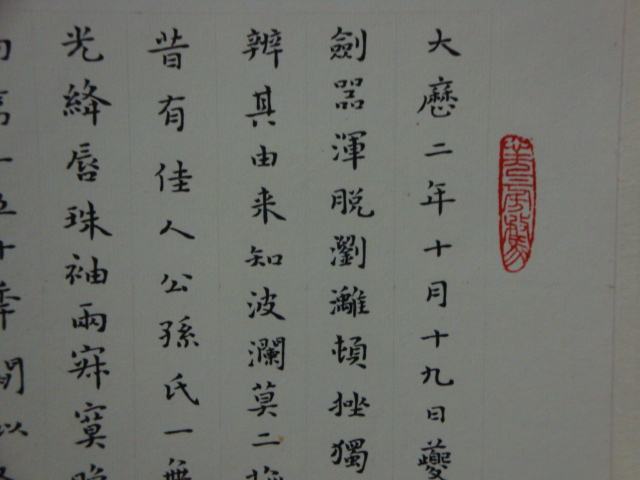 大歷二年十月十九日夔
劍噐渾脱瀏灕頓挫獨
辨其由来知波瀾莫二
昔有佳人公孫氏一
光絳唇珠袖兩寂寞
一五十年間似